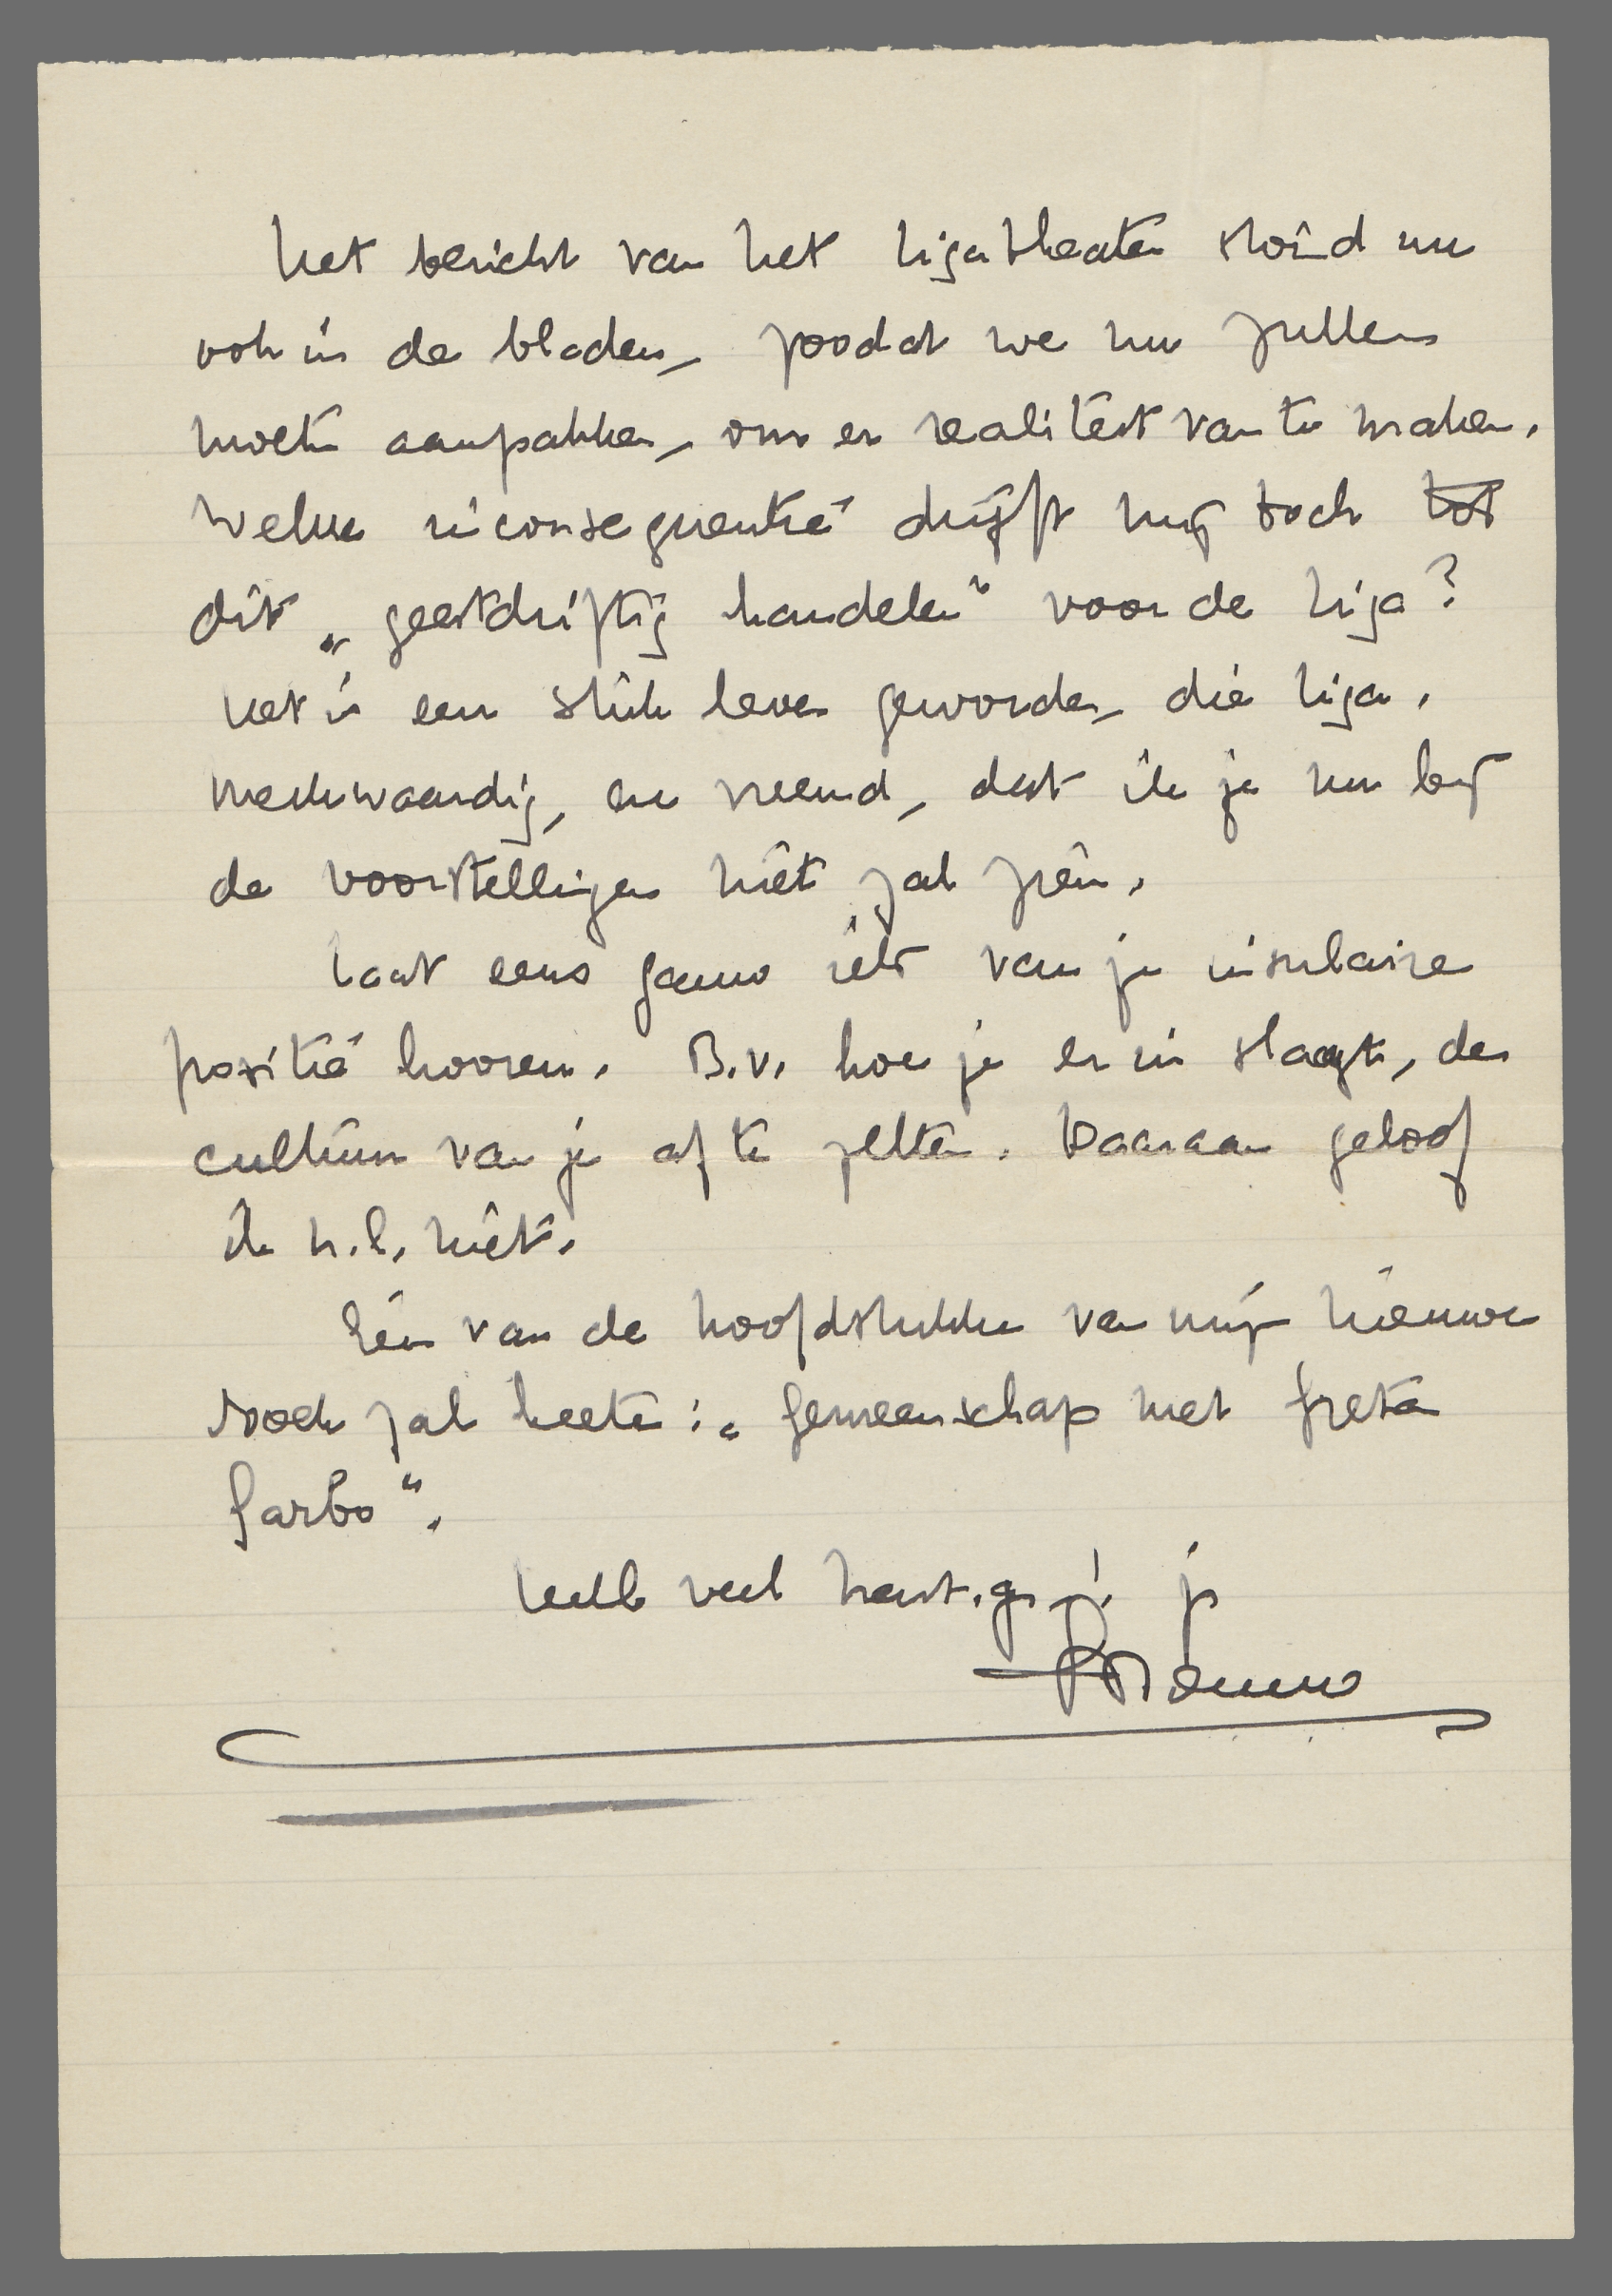 Het bericht van het Ligatheater stond nu
ook in de bladen, zoodat we nu zullen
moeten aanpakken, om er realiteit van te maken.
Welke inconsequentie drijft mij toch tot
dit „geestdriftig handelen” voor de Liga?
Het is een stuk leven geworden, die Liga.
Merkwaardig, en vreemd, dat ik je nu bij
de voorstellingen niet zal zien.
Laat eens gauw iets van je insulaire
positie hooren. B.v. hoe je er in slaagt, de
cultuur van je af te zetten. Daaraan geloof
ik n.l. niet.
Eén van de hoofdstukken van mijn nieuwe
boek zal heeten: „Gemeenschap met Greta
Garbo”.
veel hart. gr. je
Menno